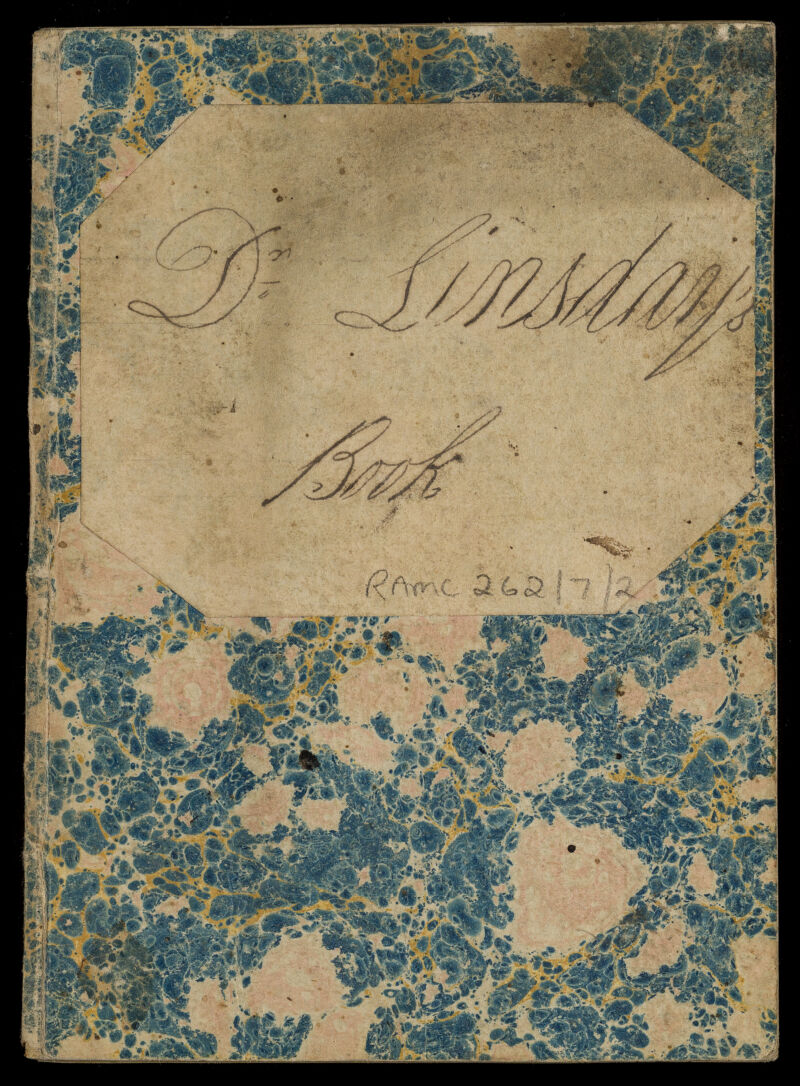 Dr Linsday's
Book
RAMC 262/7/2